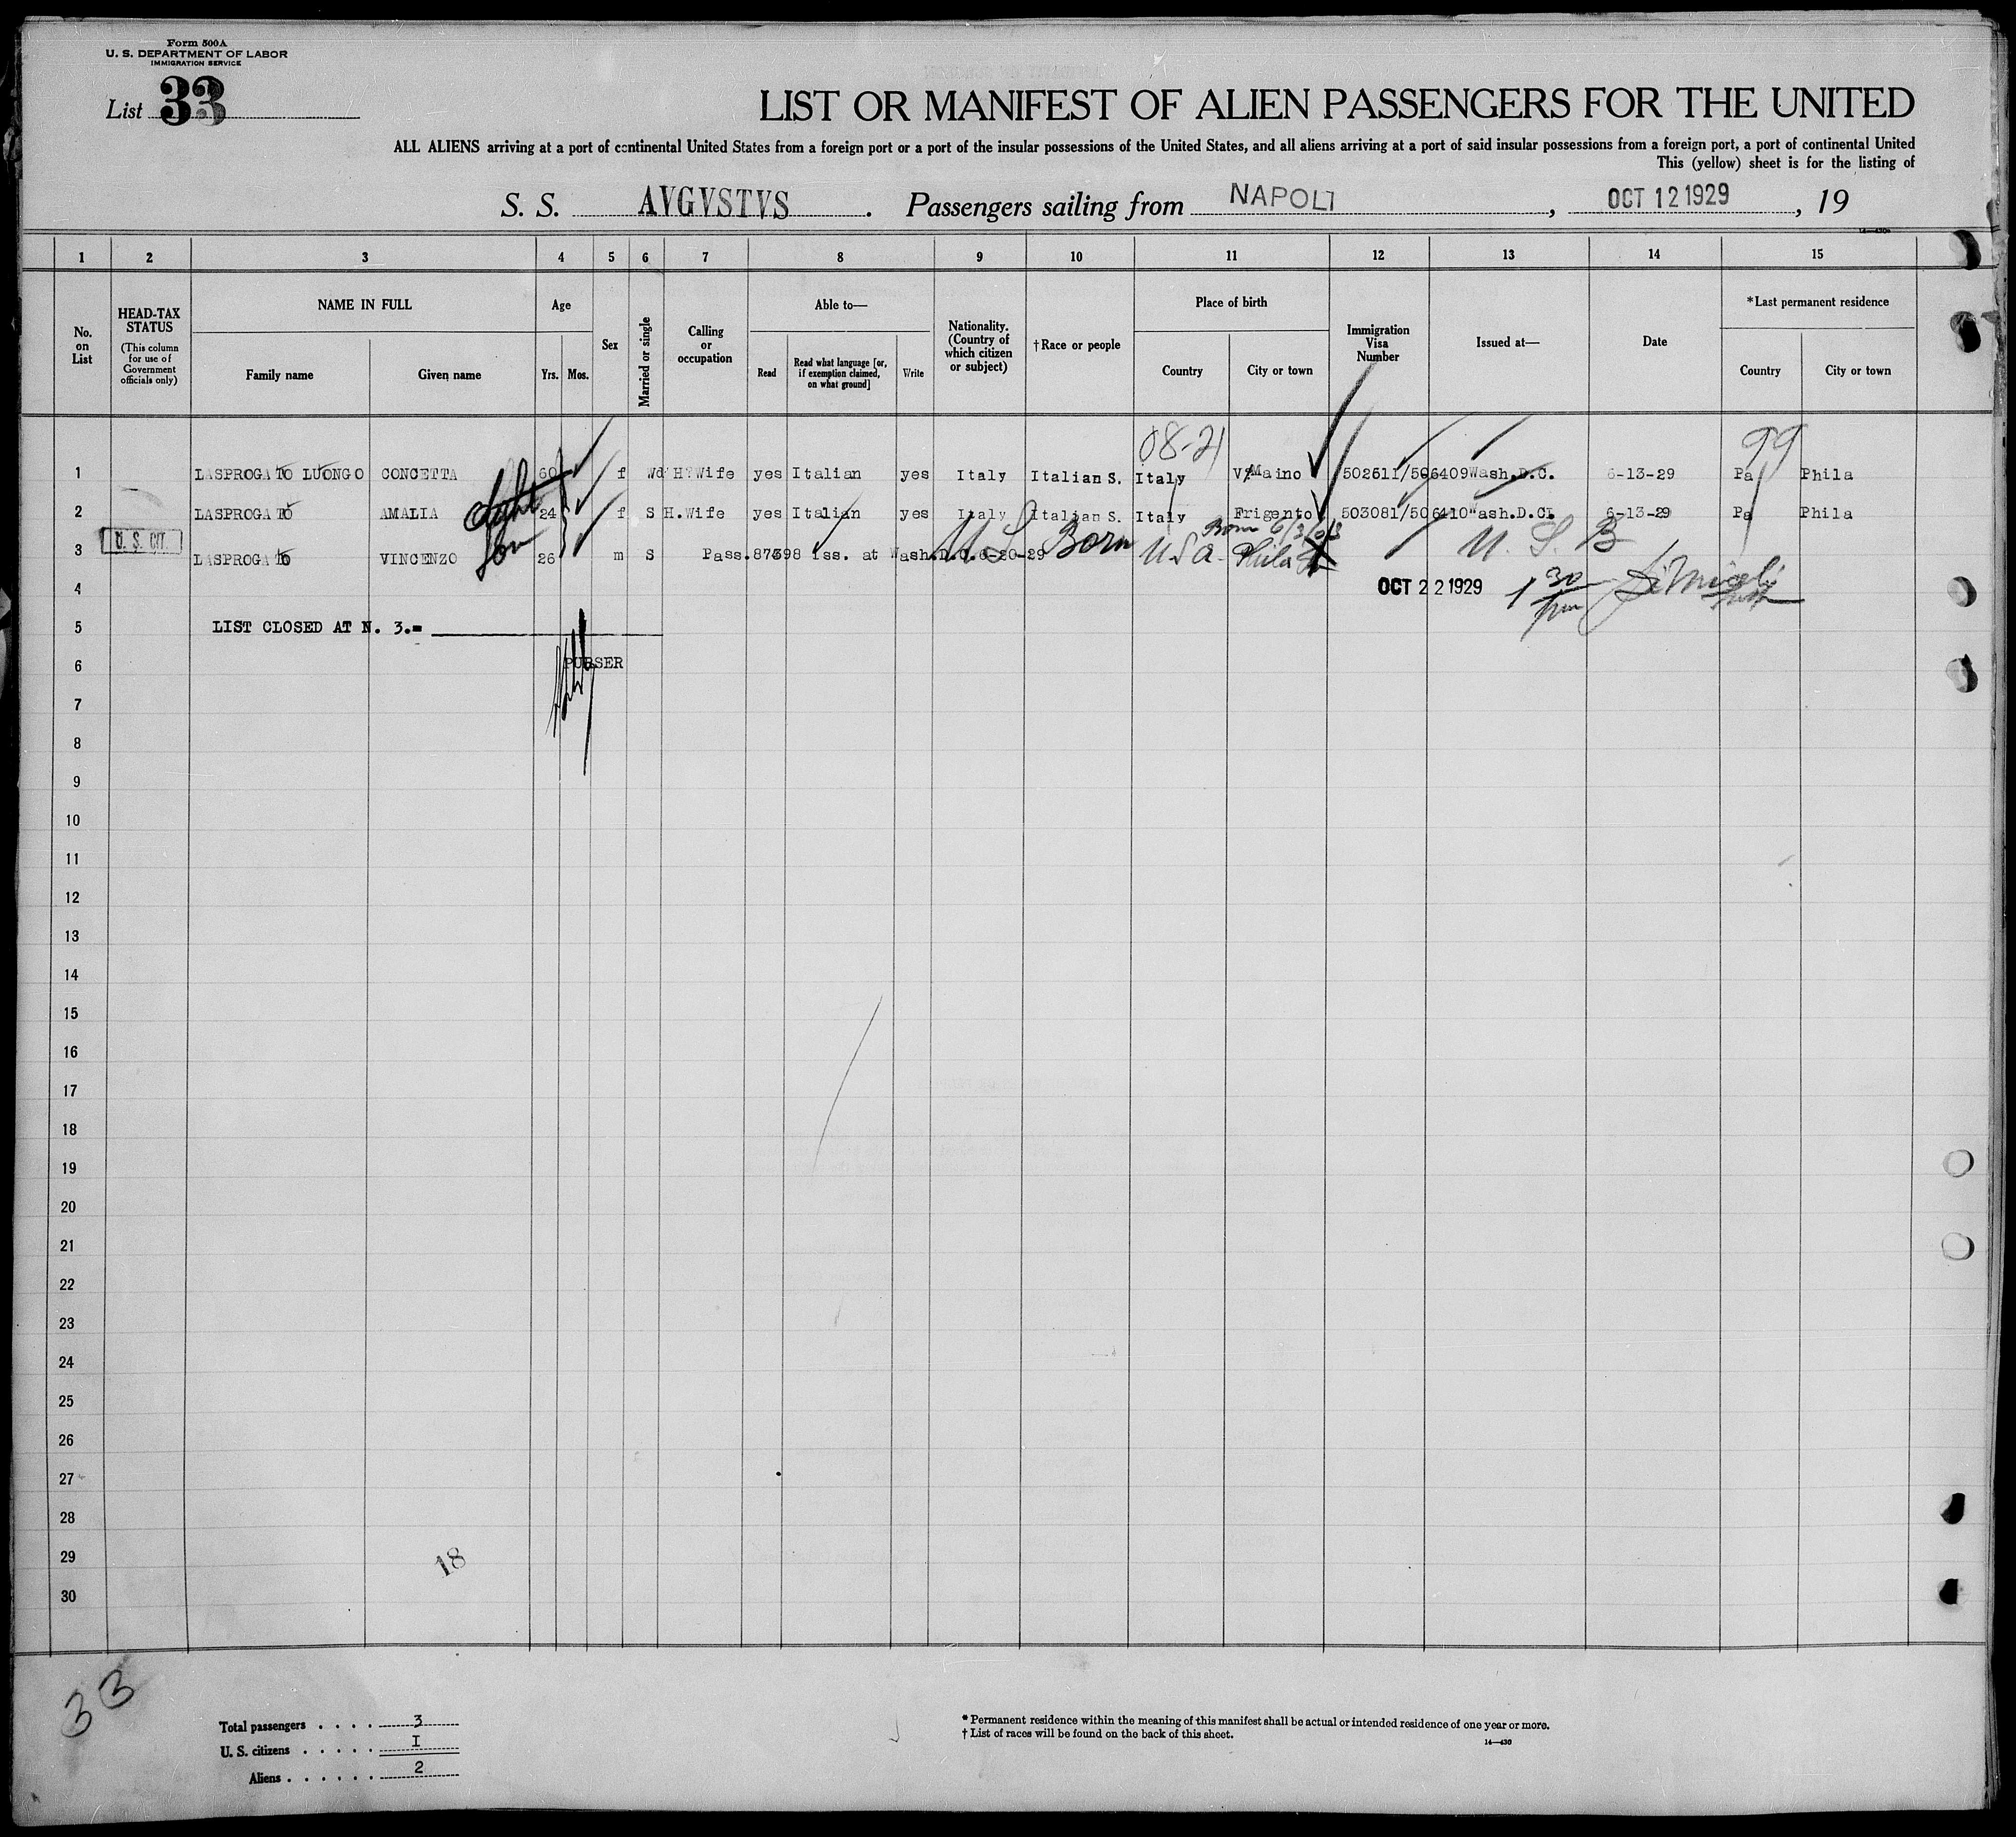 Form 500A
U. S. DEPARTMENT OF LABOR
IMMIGRATION SERVICE
List 33
LIST OR MANIFEST OF ALIEN PASSENGERS FOR THE UNITED
ALL ALIENS arriving at a port of continental United States from a foreign port or a port of the insular possessions of the United States, and all aliens arriving at a port of said insular possessions from a foreign port, a port of continental United
This (yellow) sheet is for the listing of
S. S. AVGVSTVS . Passengers sailing from NAPOLI , OCT 12 1929 , 19
14—430
1 2 3 4 5 6 7 8 9 10 11 12 13 14 15
No. on List
HEAD-TAX STATUS
(This column for use of Government officials only)
NAME IN FULL
Family name Given name
Age
Yrs. Mos.
Sex
Married or single
Calling or occupation
Able to—
Read
Read what language [or, if exemption claimed, on what ground]
Write
Nationality. (Country of which citizen or subject)
†Race or people
Place of birth
Country City or town
Immigration Visa Number
Issued at—
Date
*Last permanent residence
Country City or town
08-21 99
1 LASPROGATO LUONGO CONCETTA 60 f Wd H.Wife yes Italian yes Italy Italian S. Italy Maino /506409 Wash.D.C. 6-13-29 Pa Phila
2 LASPROGATO AMALIA 24 f S H.Wife yes Italian yes Italy Italian S. Italy Frigento 503081/506410 Wash.D.C. 6-13-29 Pa Phila
U. S. CIT.
3 LASPROGATO VINCENZO Son 26 m S Pass. iss. at Wash.D.C. 6-20-29 U S Born USA Phila U. S. B
4 OCT 22 1929 1 30 pm
5 LIST CLOSED AT N. 3.=
6 PURSER
7
8
9
10
11
12
13
14
15
16
17
18
19
20
21
22
23
24
25
26
27
28
29
18
30
33
Total passengers . . . . 3
U. S. citizens . . . . . I
Aliens . . . . . . 2
* Permanent residence within the meaning of this manifest shall be actual or intended residence of one year or more.
† List of races will be found on the back of this sheet.
14—430